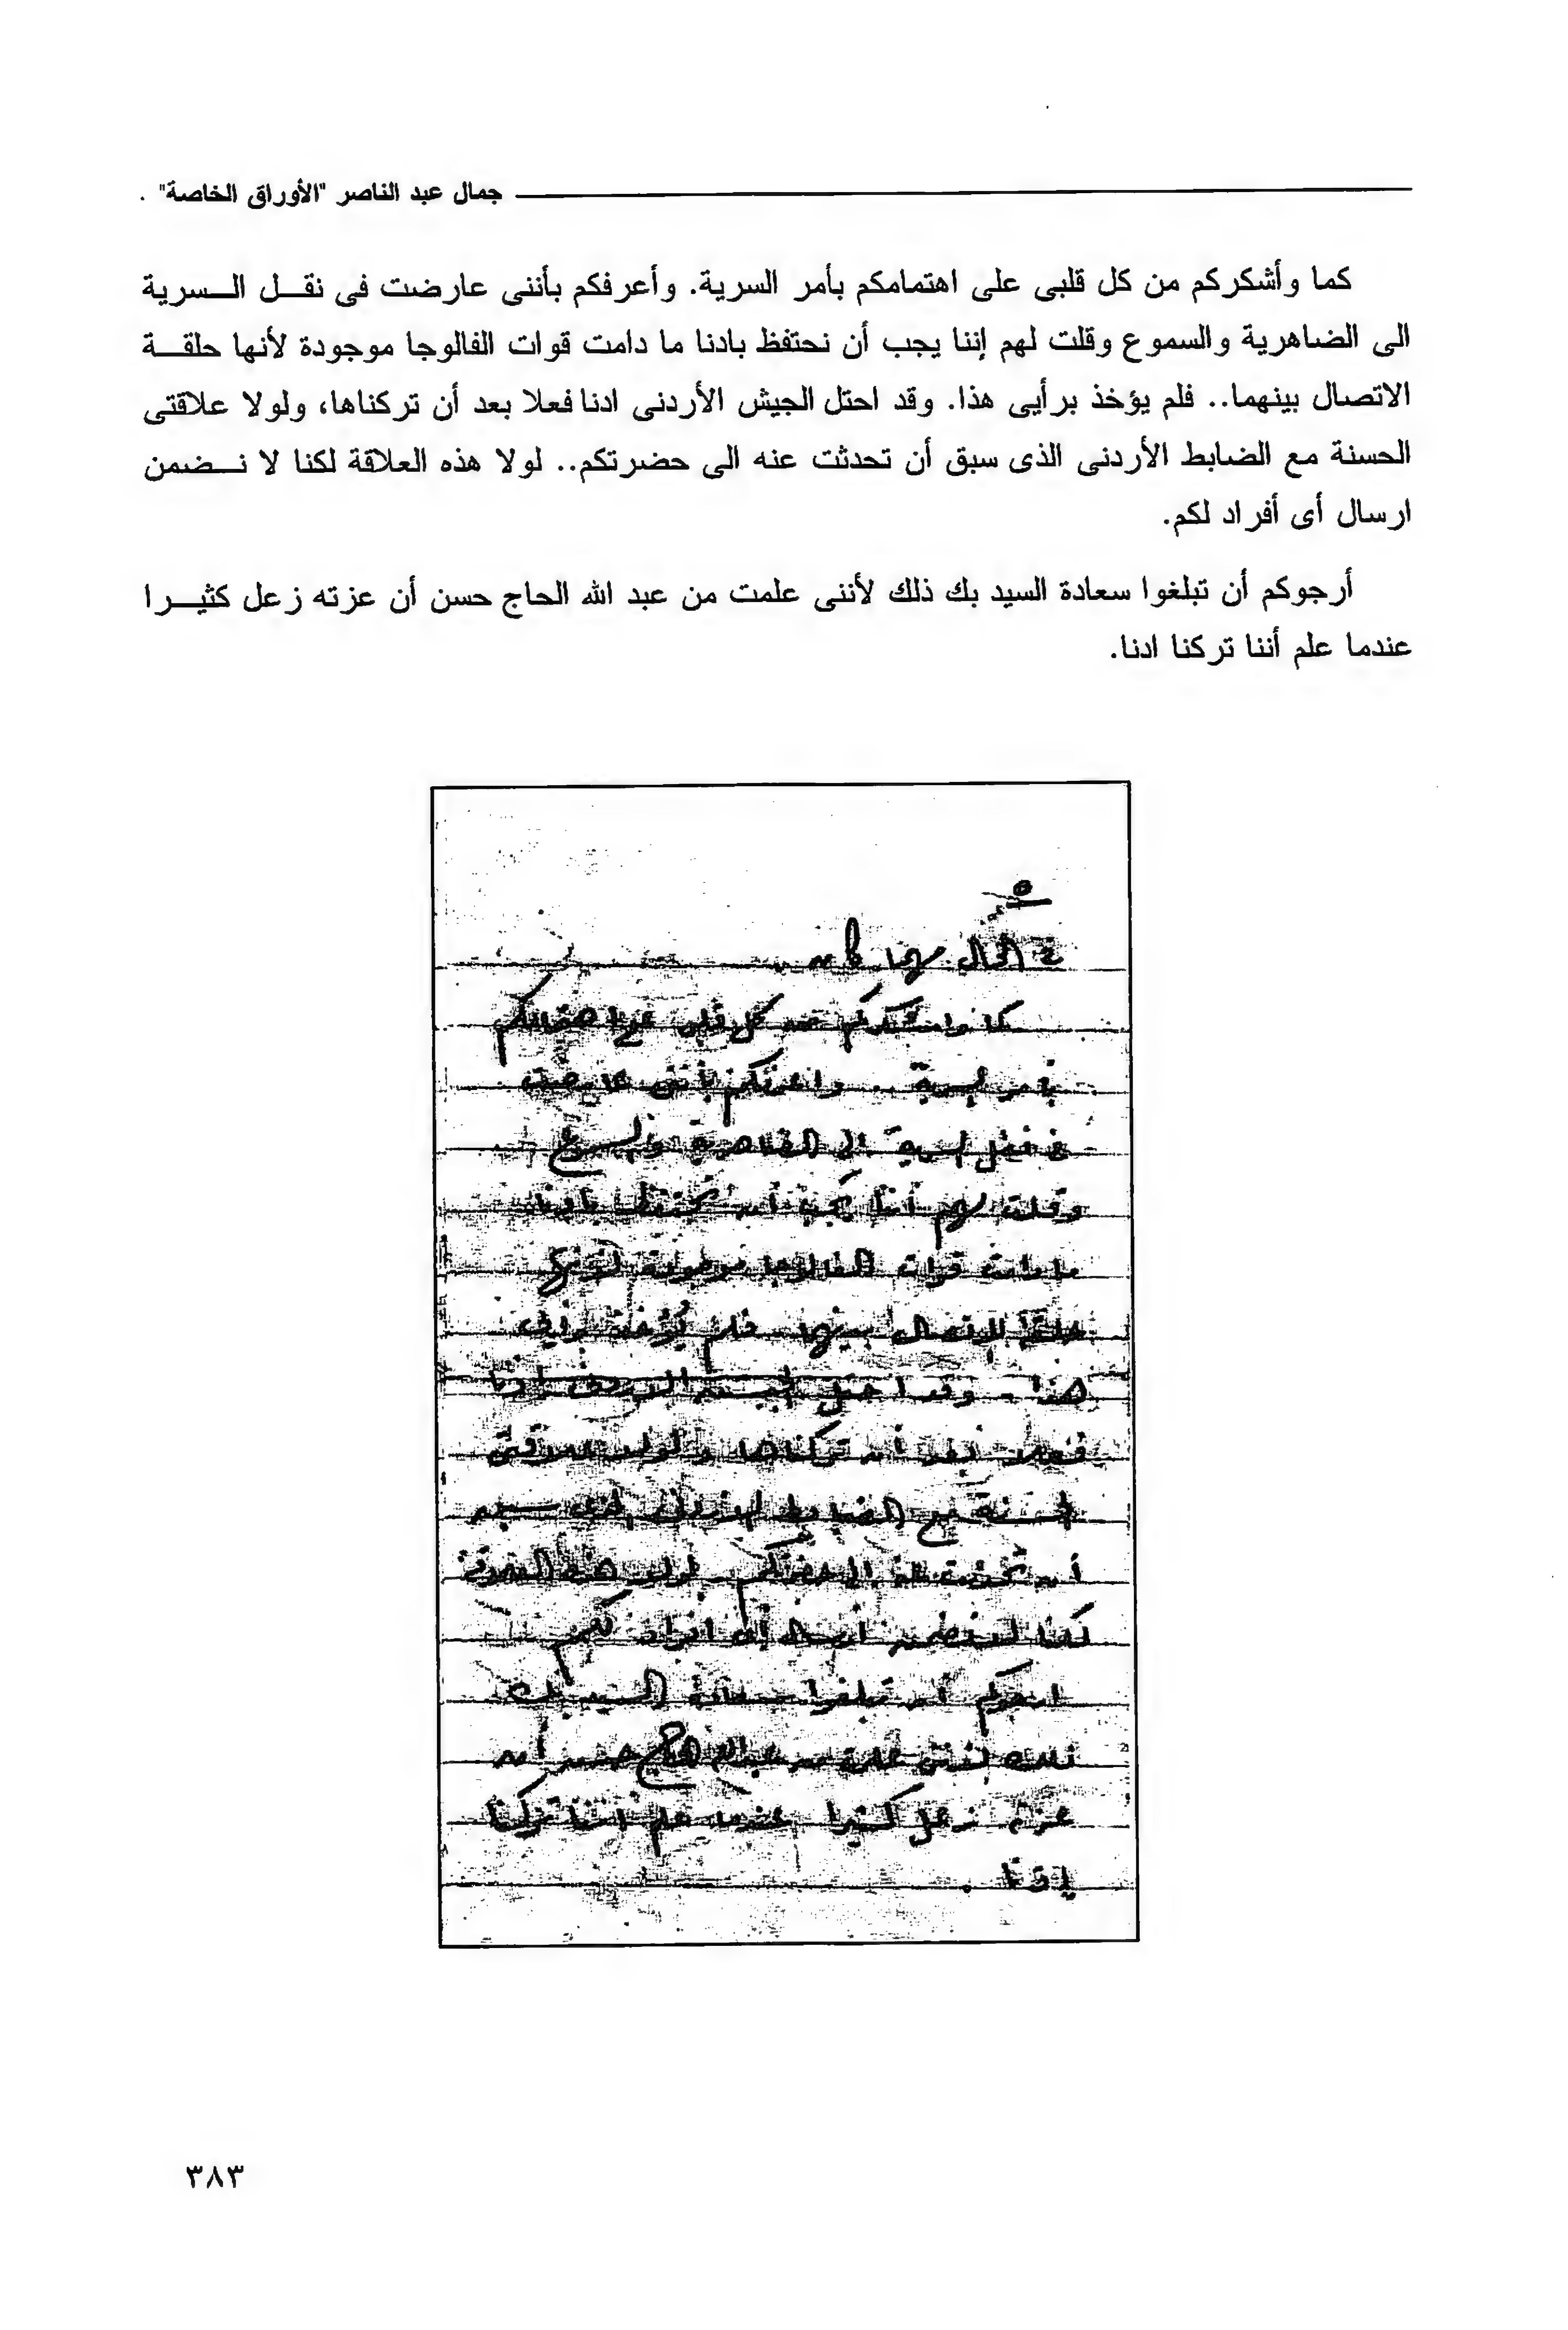 جمال عبد الناصر "الأوراق الخاصة" .
كما وأشكركم من كل قلبى على اهتمامكم بأمر السرية. وأعرفكم بأننى عارضت فى نقــل الــسرية
الى الضاهرية والسموع وقلت لهم إننا يجب أن نحتفظ بادنا ما دامت قوات الفالوجا موجودة لأنها حلقــة
الاتصال بينهما.. فلم يؤخذ برأيى هذا. وقد احتل الجيش الأردنى ادنا فعلا بعد أن تركناها، ولولا علاقتى
الحسنة مع الضابط الأردنى الذى سبق أن تحدثت عنه الى حضرتكم.. لولا هذه العلاقة لكنا لا نــضمن
ارسال أى أفراد لكم.
أرجوكم أن تبلغوا سعادة السيد بك ذلك لأننى علمت من عبد الله الحاج حسن أن عزته زعل كثيــرا
عندما علم أننا تركنا ادنا.
٥
فى الحال مهما كان
كما وأشكركم من كل قلبى على اهتمامكم
بأمر السرية .. وأعرفكم بأننى عارضت
فى نقل السرية الى الضاهرية والسموع
وقلت لهم أننا يجب أن نحتفظ بادنا
ما دامت قوات الفالوجا موجودة لأنها
حلقة الاتصال بينهما .. فلم يُؤخذ برأيى
هذا .. وقد احتل الجيش الاردنى ادنا
فعلا بعد أن تركناها ولولا علاقتى
الحسنة مع الضابط الاردنى الذى سبق
أن تحدثت عنه الى حضرتكم .. لولا هذه العلاقة
لكنا لا نضمن ارسال أى افراد لكم
ارجوكم أن تبلغوا سعادة السيد بك
ذلك لأننى علمت من عبد الله الحاج حسن أن
عزته زعل كثيرا عندما علم اننا تركنا
إدنا .
٣٨٣